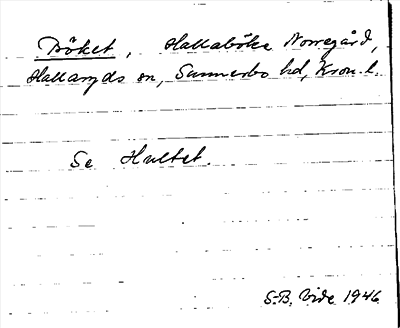 Böket, Hallaböke Norregård,
Hallaryds sn, Sunnerbo hd, Kron. l.
Se Hultet.
S-B. Vide 1946